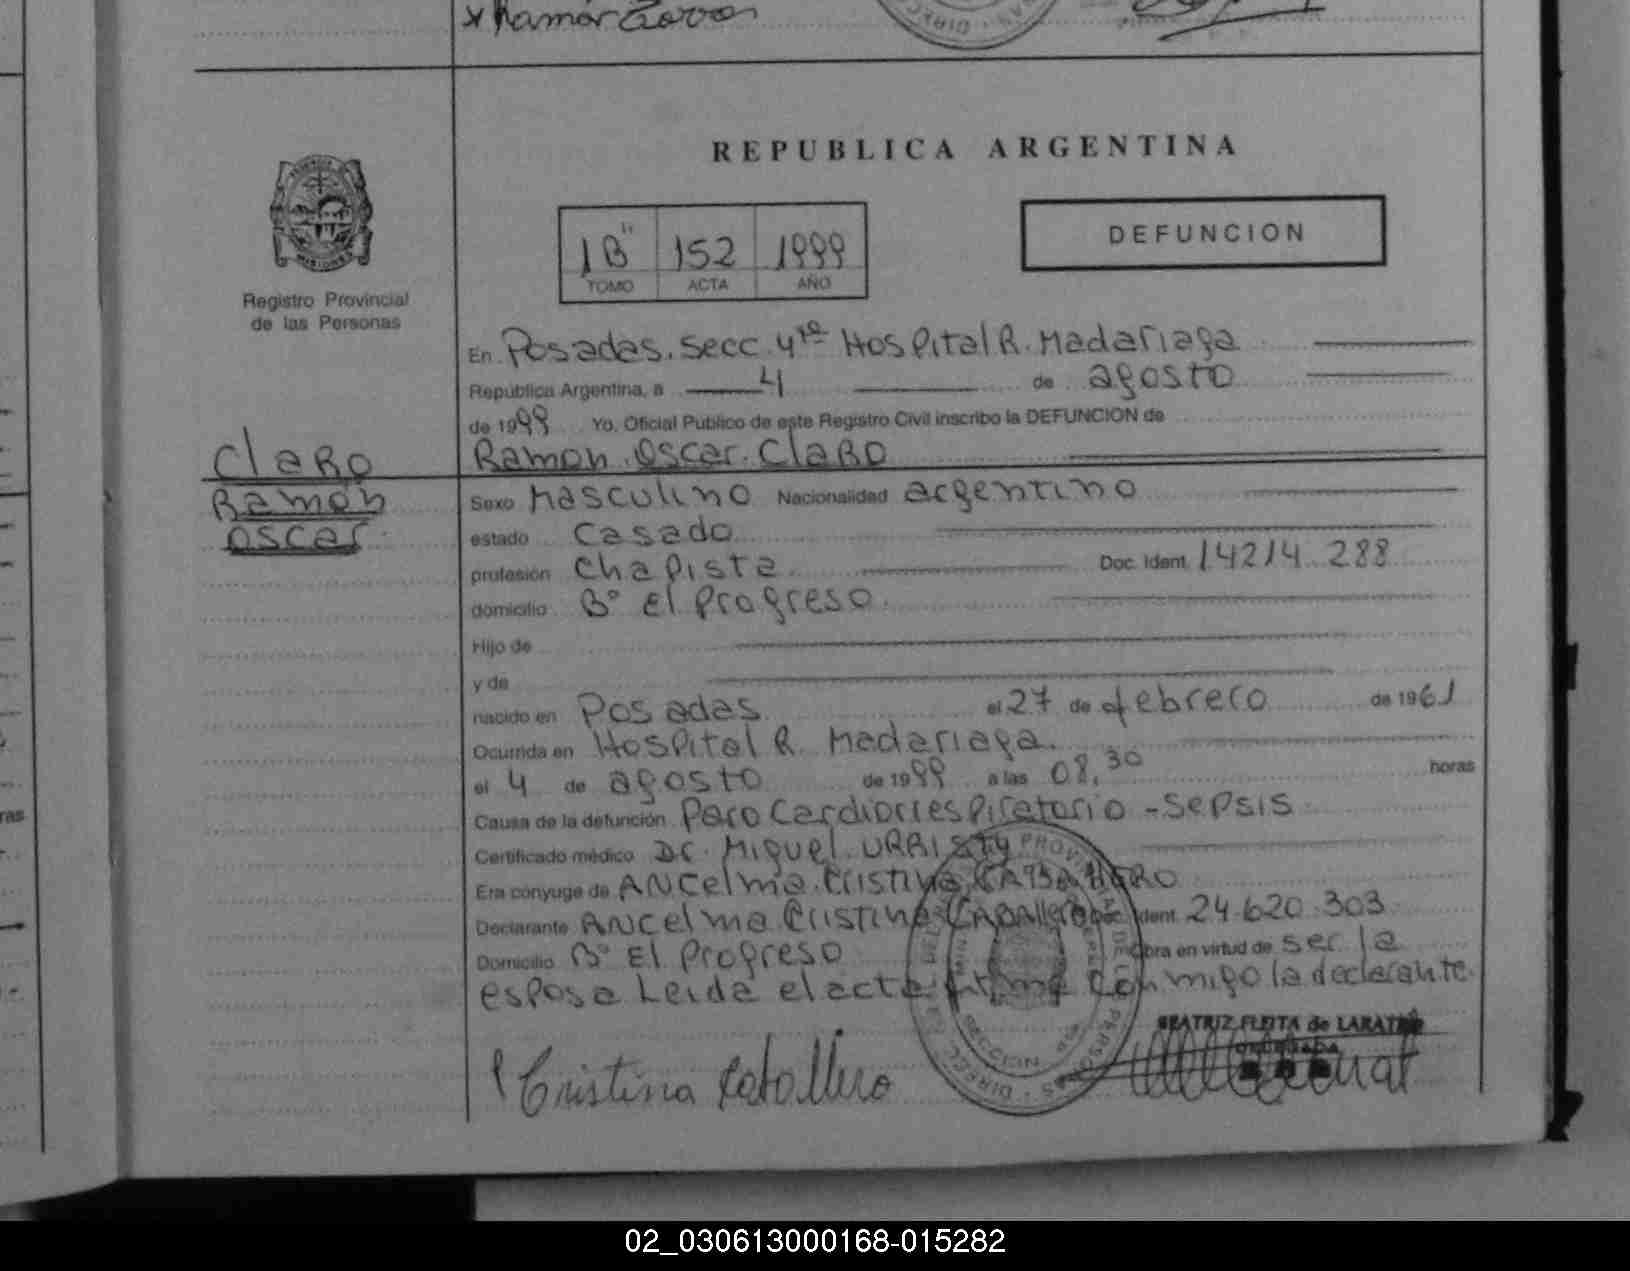 Ramón
REPUBLICA ARGENTINA
1B" 152 1999
TOMO ACTA AÑO
DEFUNCION
MISIONES
Registro Provincial
de las Personas
En Posadas. Secc. 4ta Hospital R. Madariaga
República Argentina, a 4 de agosto
de 1999 Yo, Oficial Público de este Registro Civil inscribo la DEFUNCION de
Claro Ramon Oscar Claro
Ramón
Oscar
Sexo Masculino Nacionalidad argentino
estado Casado
profesión Chapista Doc. Ident. 14214.288
domicilio B° El Progreso
Hijo de
y de
nacido en Posadas el 27 de febrero de 1961
Ocurrida en Hospital R. Madariaga.
el 4 de agosto de 1999 a las 08,30 horas
Causa de la defunción Paro Cardiorrespiratorio - Sepsis
Certificado médico Dr. Miguel
Era cónyuge de ANCelma Cristina CABAllERO
Declarante ANCelma Cristina CABAllero Doc. Ident. 24.620.303
Domicilio B° El Progreso Obra en virtud de ser la
esposa Leida el acta firma conmigo la declarante.
BEATRIZ FLEITA de
Cristina Caballero
02_030613000168-015282